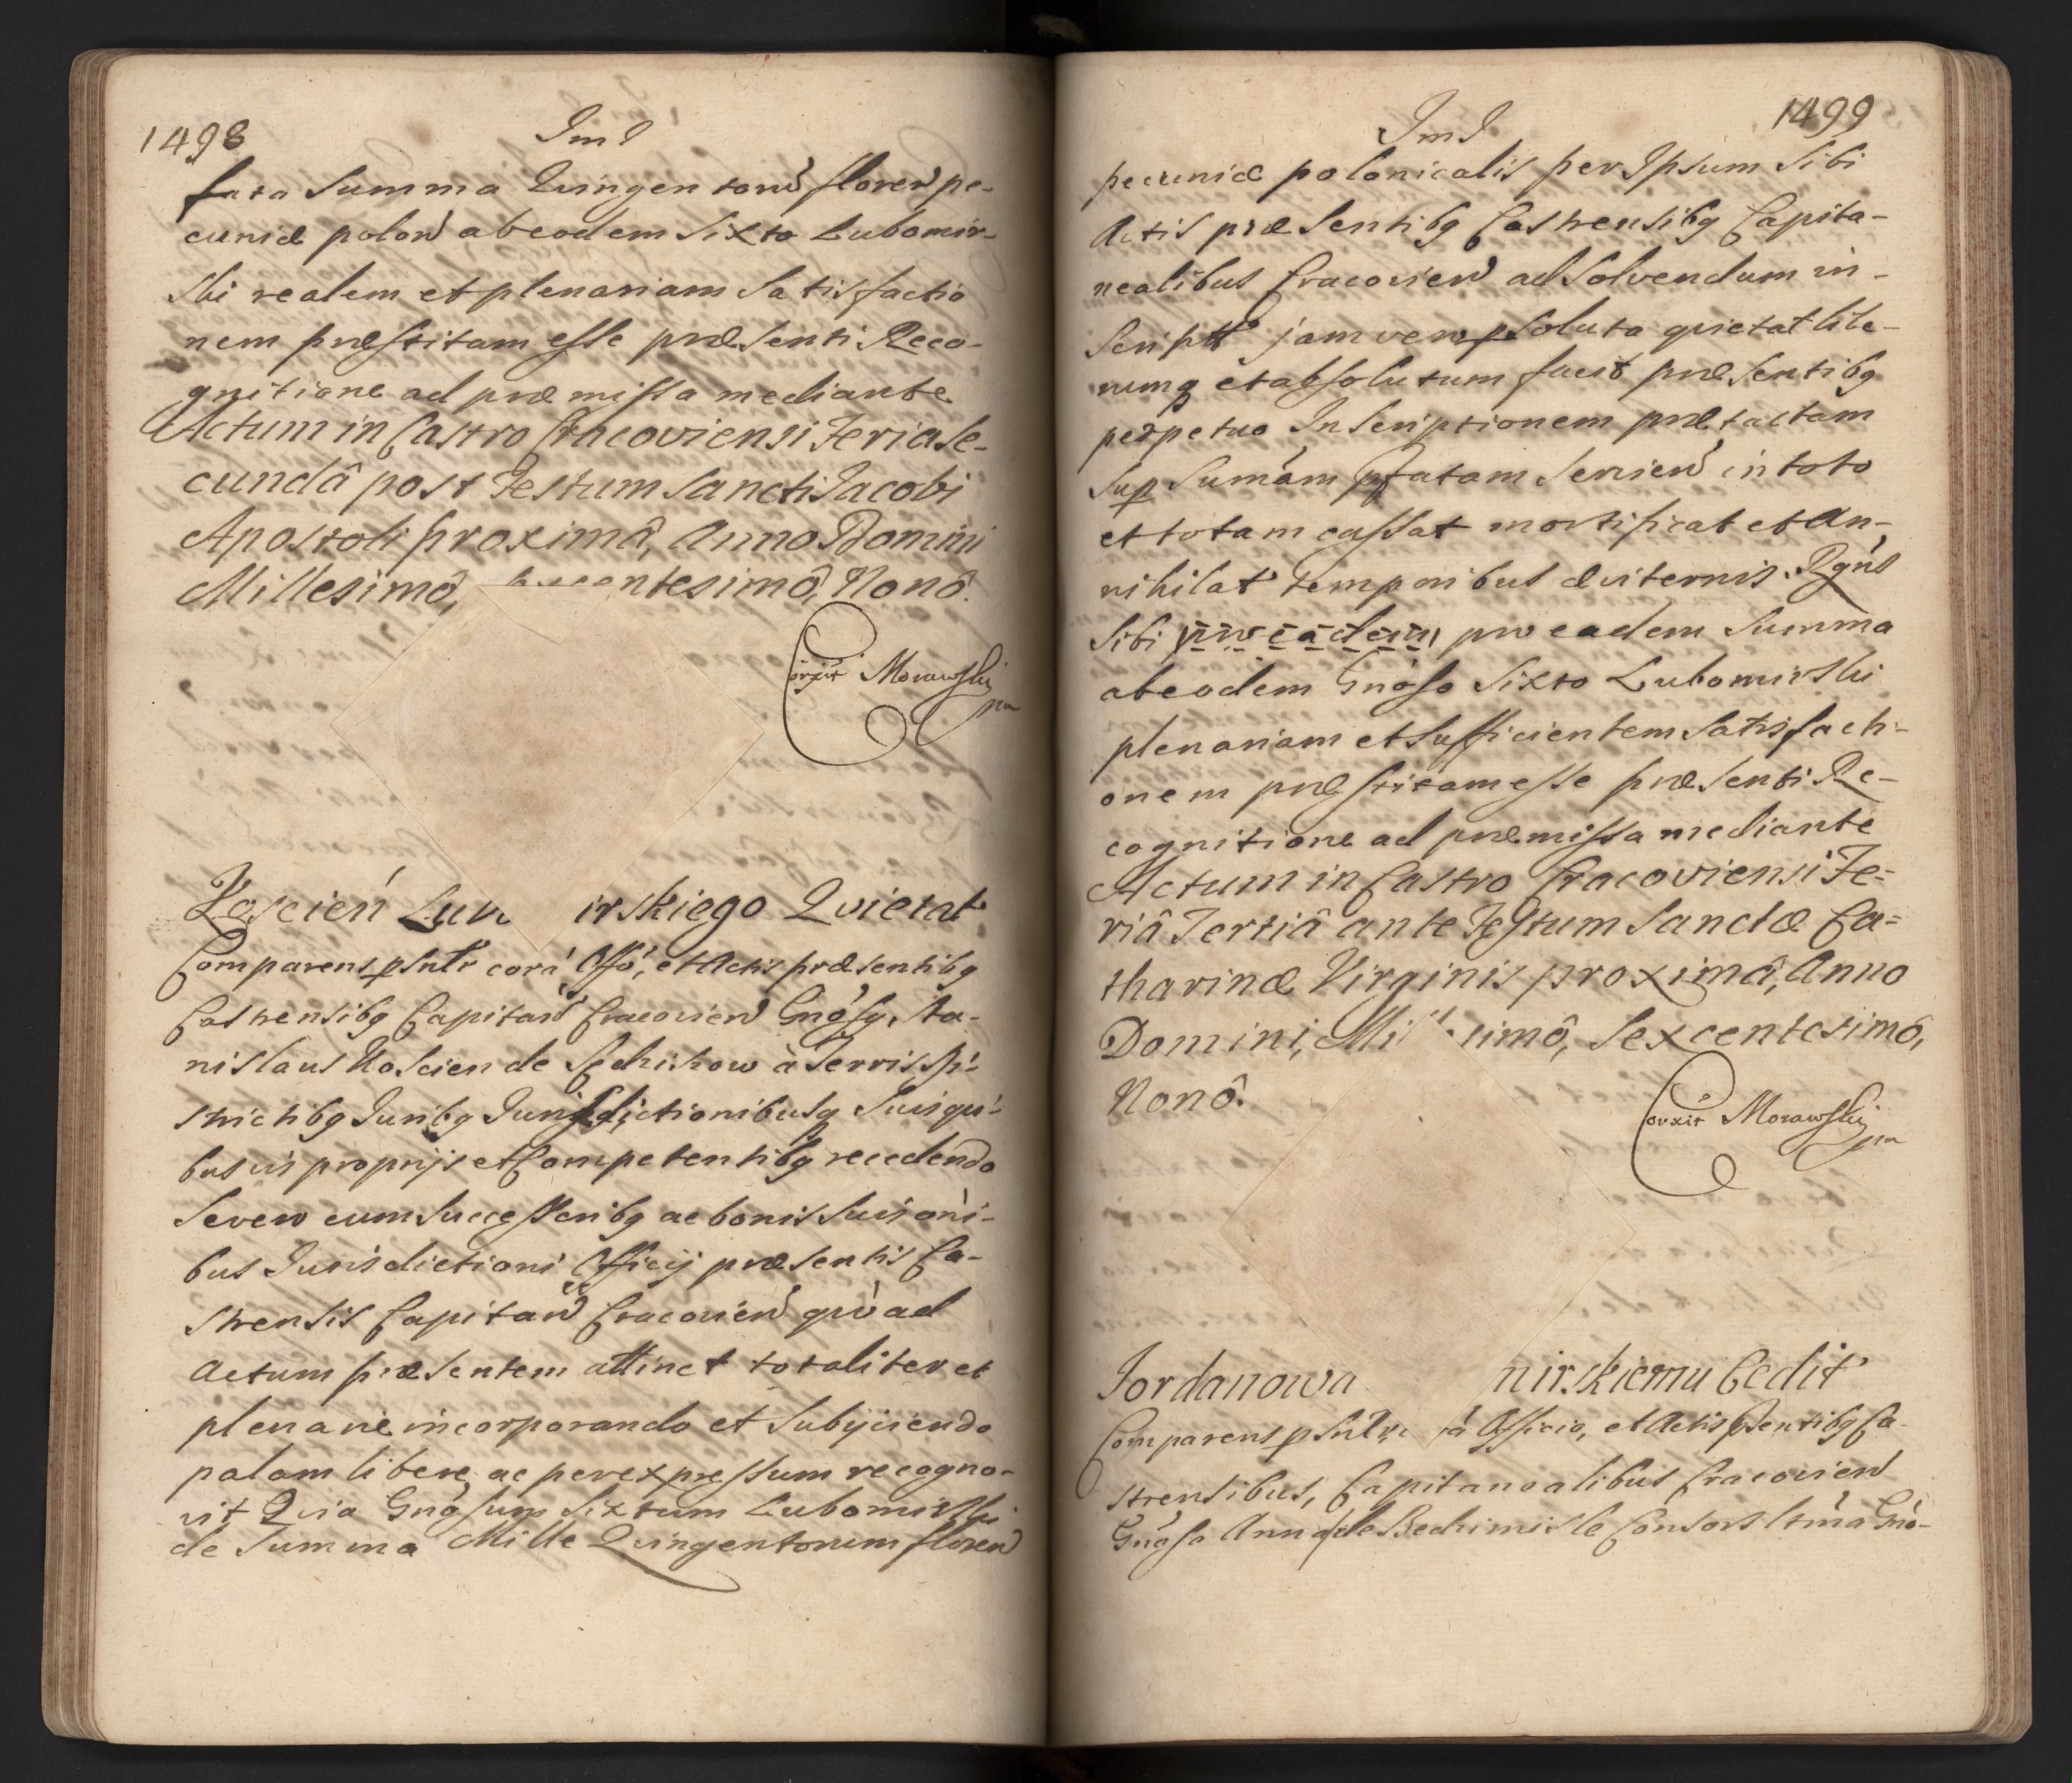 1498
ImI
fata Summa Quingentorũ florẽ pe-
cuniæ poloñ ab eodem Sixto Lubomir-
ski realem et plenariam Satisfactio
nem præstitam esse præsenti Reco-
gnitione ad præmissa mediante
Actum in Castro Cracoviensi Feria Se-
cundâ post Festum Sancti Jacobi
Apostoli proximâ, Anno Domini
Millesimô, centesimô, Nonô.
Corrxit Morawski
mp
Koscień Lub irskiego Quietat
Comparens psntr corá Offó, et Actis præsentibq
Castrensibq Capitañ Cracovień Gnósq, Sta-
nislaus Koscien de Sechihow à Terris Di-
strictibq Juribq Jurisdictionibusq Suis qui-
busvis proprijs et Competentibq recedendo
Severo cum Successoribq ac bonis Suis oni-
bus Jurisdictioni Officij præsentis Ca-
strensis Capitañ Cracovień quò ad
Actum præsentem attinet totaliter et
plenarie incorporando et Subijciendo
palam libere ac per expressum recogno-
vit Quia Gnósum Sixtum Lubomirski
de Summa Mille Quingentorum floreñ
1499
ImI
pecuniæ polonicalis per Ipsum Sibi
Actis præsentibq Castrensibq Capita-
nealibus Cracovień ad Solvendum in-
Scriptt jam vero psoluta quietat libe-
rumq et absolutum facit præsentibq
perpetuo Inscriptionem prætactam
Sup Sumám pfatam Servień in toto
et totam cassat mortificat et An-
nihilat temporibus æviternis. Rgńs
Sibi pro eadem pro eadem Summa
ab eodem Gnóso Sixto Lubomirski
plenariam et Sufficientem Satisfacti-
onem præstitam esse præsenti Re-
cognitione ad præmissa mediante
Actum in Castro Cracoviensi Fe-
riâ Tertiâ ante Festum Sanctæ Ca-
tharinæ Virginis proximâ, Anno
Domini, Mil simô, Sexcentesimô,
Nonô.
Corrxit Morawski
mp
Jordanowa mirskiemu Cedit
Comparens psntr rá Officio, et Actis psentibq Ca-
strensibus, Capitanealibus Cracovień
Gnósa Anna de Bechimisle Consors ltima Gnó-